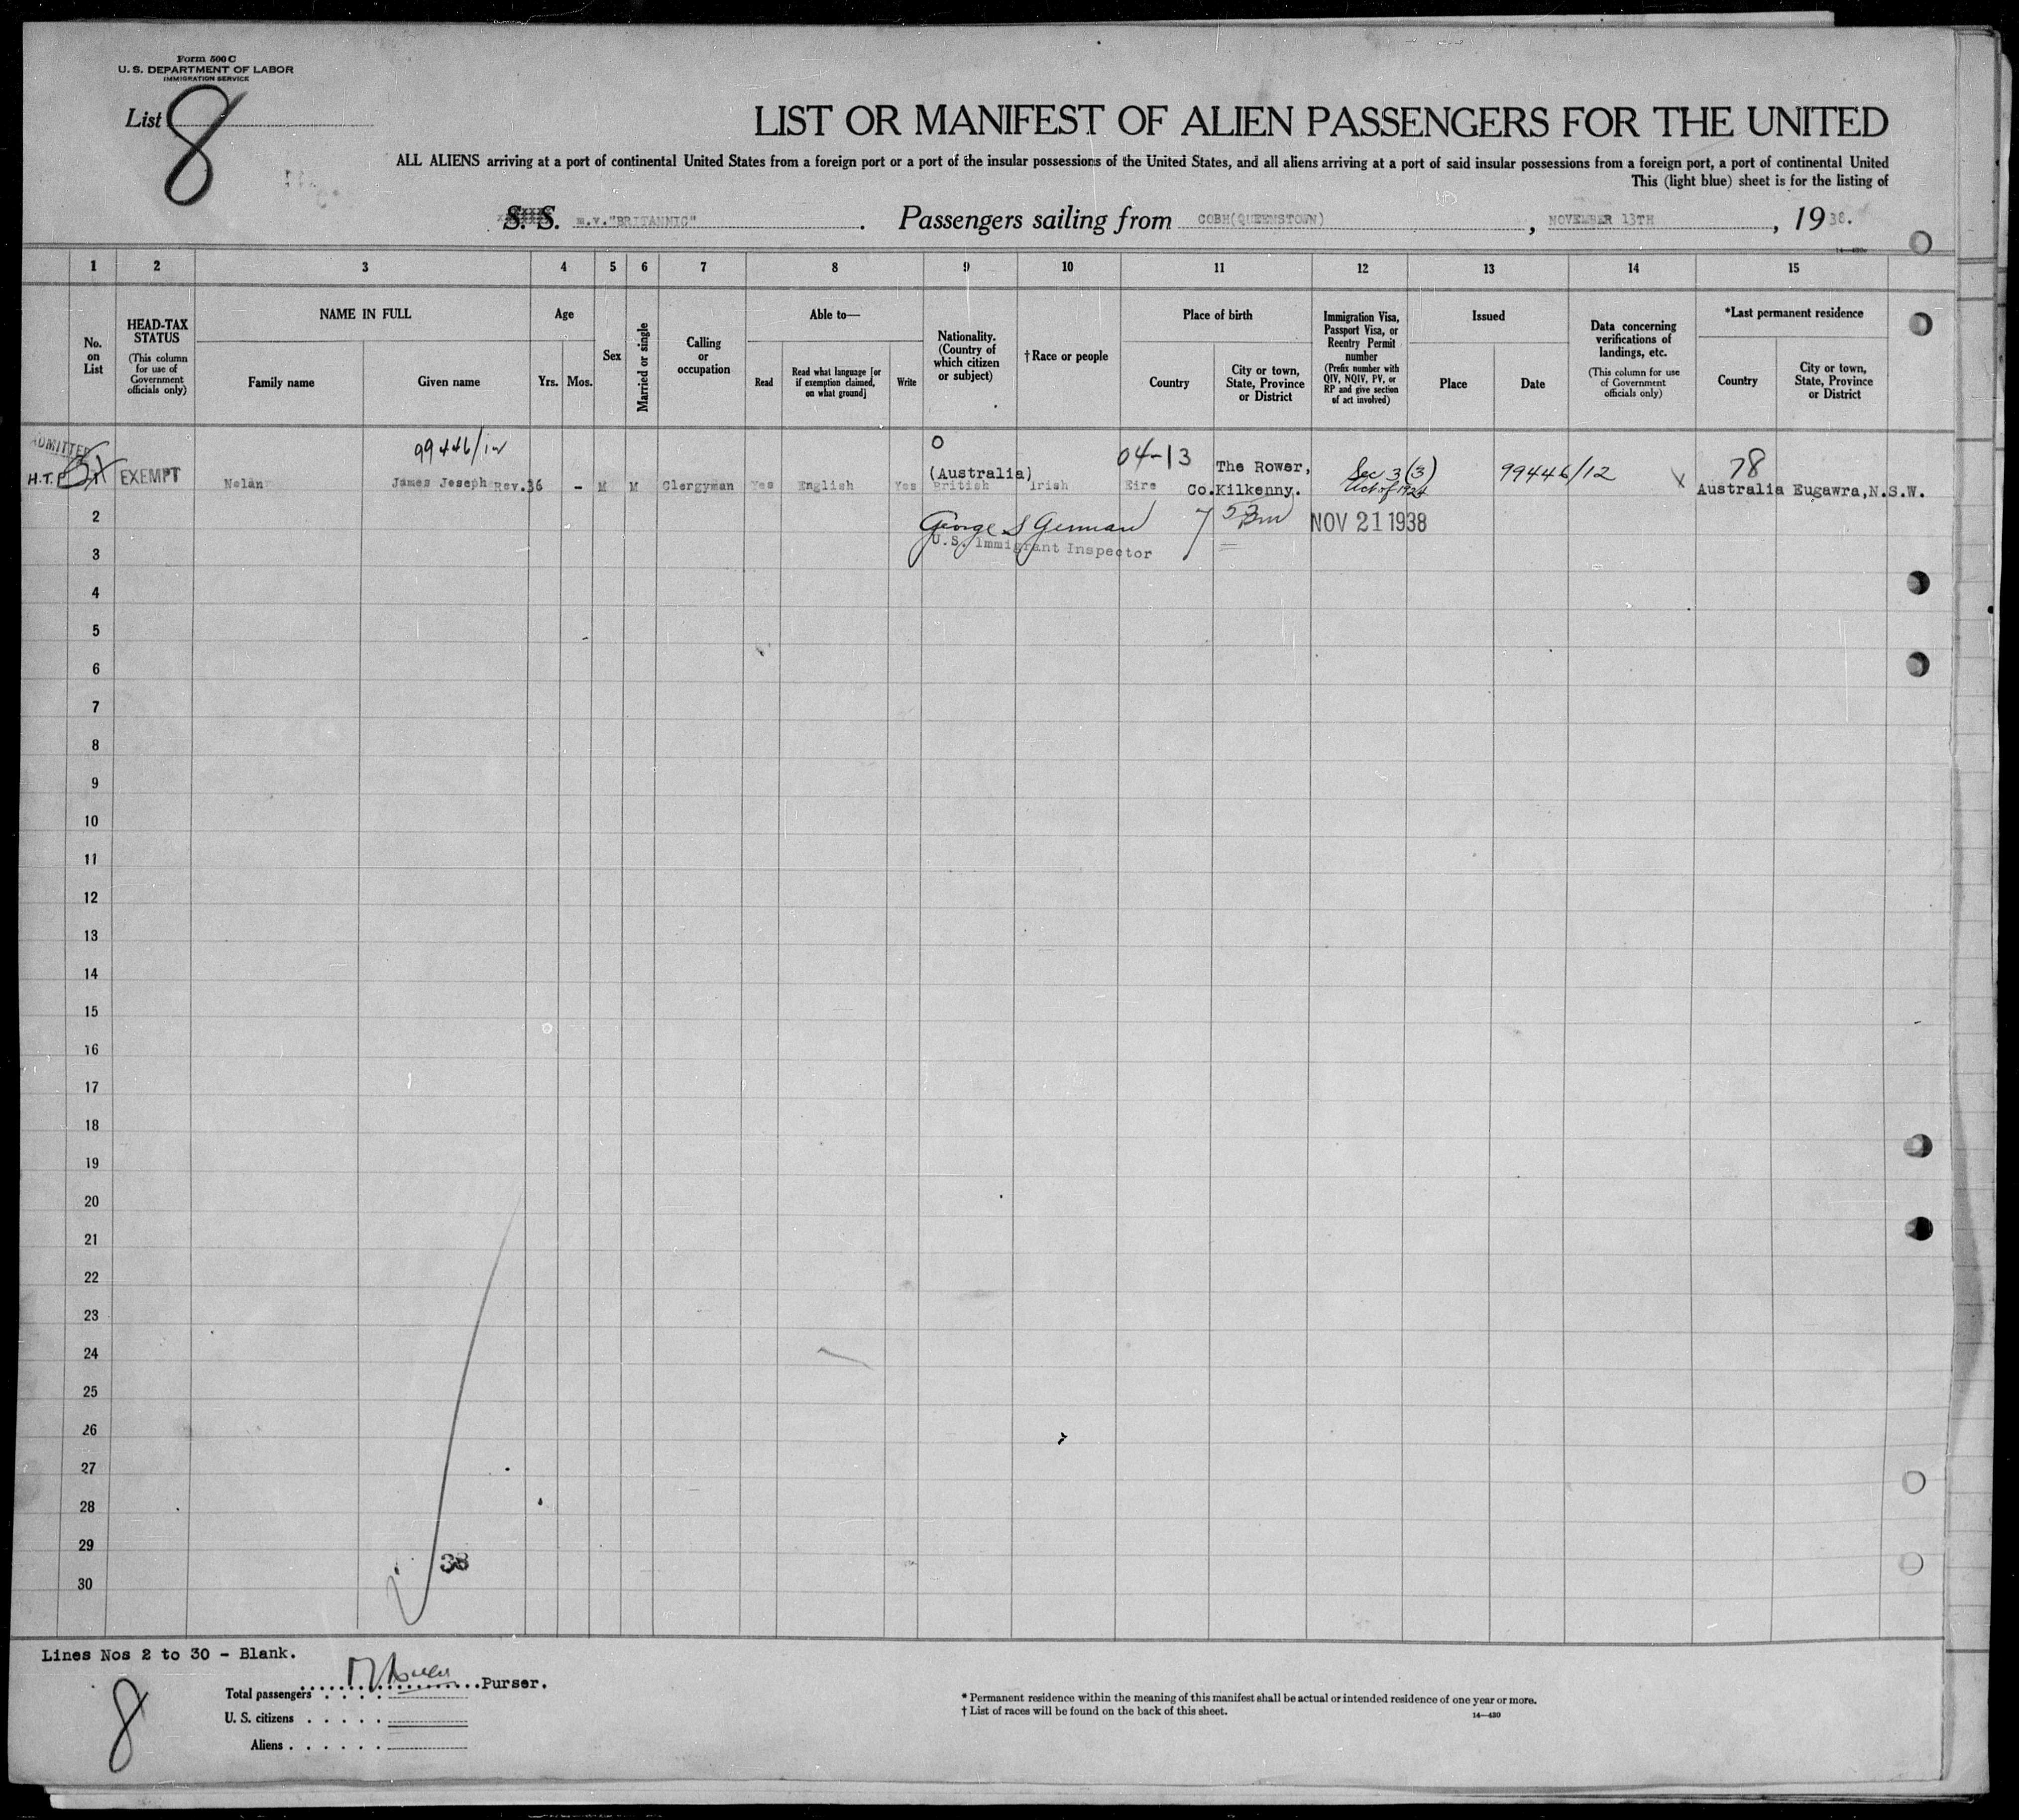 Form 500 C
U. S. DEPARTMENT OF LABOR
IMMIGRATION SERVICE
List 8
LIST OR MANIFEST OF ALIEN PASSENGERS FOR THE UNITED
ALL ALIENS arriving at a port of continental United States from a foreign port or a port of the insular possessions of the United States, and all aliens arriving at a port of said insular possessions from a foreign port, a port of continental United
This (light blue) sheet is for the listing of
S. S. m.v."BRITANNIC". Passengers sailing from COBH(QUEENSTOWN), NOVEMBER 13TH, 1938.
14—430
1 2 3 4 5 6 7 8 9 10 11 12 13 14 15
No. on List
HEAD-TAX STATUS (This column for use of Government officials only)
NAME IN FULL
Family name
Given name
Age
Yrs. Mos.
Sex
Married or single
Calling or occupation
Able to—
Read
Read what language [or if exemption claimed, on what ground]
Write
Nationality. (Country of which citizen or subject)
† Race or people
Place of birth
Country
City or town, State, Province or District
Immigration Visa, Passport Visa, or Reentry Permit number (Prefix number with QIV, NQIV, PV, or RP and give section of act involved)
Issued
Place
Date
Data concerning verifications of landings, etc. (This column for use of Government officials only)
*Last permanent residence
Country
City or town, State, Province or District
ADMITTED
99446/12 0 04-13 78
(Australia) The Rower, Sec 3 (3) 99446/12
H.T.P. EXEMPT Nolan James Joseph Rev. 36 - M M Clergyman Yes English Yes British Irish Eire Co.Kilkenny. Act of 1924 x Australia Eugawra, N.S.W.
2 George S German 7 53 pm NOV 21 1938
U.S. Immigrant Inspector
3
4
5
6
7
8
9
10
11
12
13
14
15
16
17
18
19
20
21
22
23
24
25
26
27
28
29
38
30
Lines Nos 2 to 30 - Blank.
Purser.
8
Total passengers
U. S. citizens
Aliens
* Permanent residence within the meaning of this manifest shall be actual or intended residence of one year or more.
† List of races will be found on the back of this sheet.
14—430